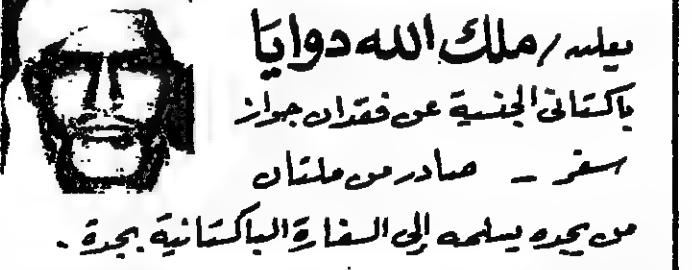 يعلن / ملك الله دوايا
باكستاني الجنسية عن فقدان جواز
سفر - صادر من ملتان
من يجده يسلمه إلى السفارة الباكستانية بجدة .